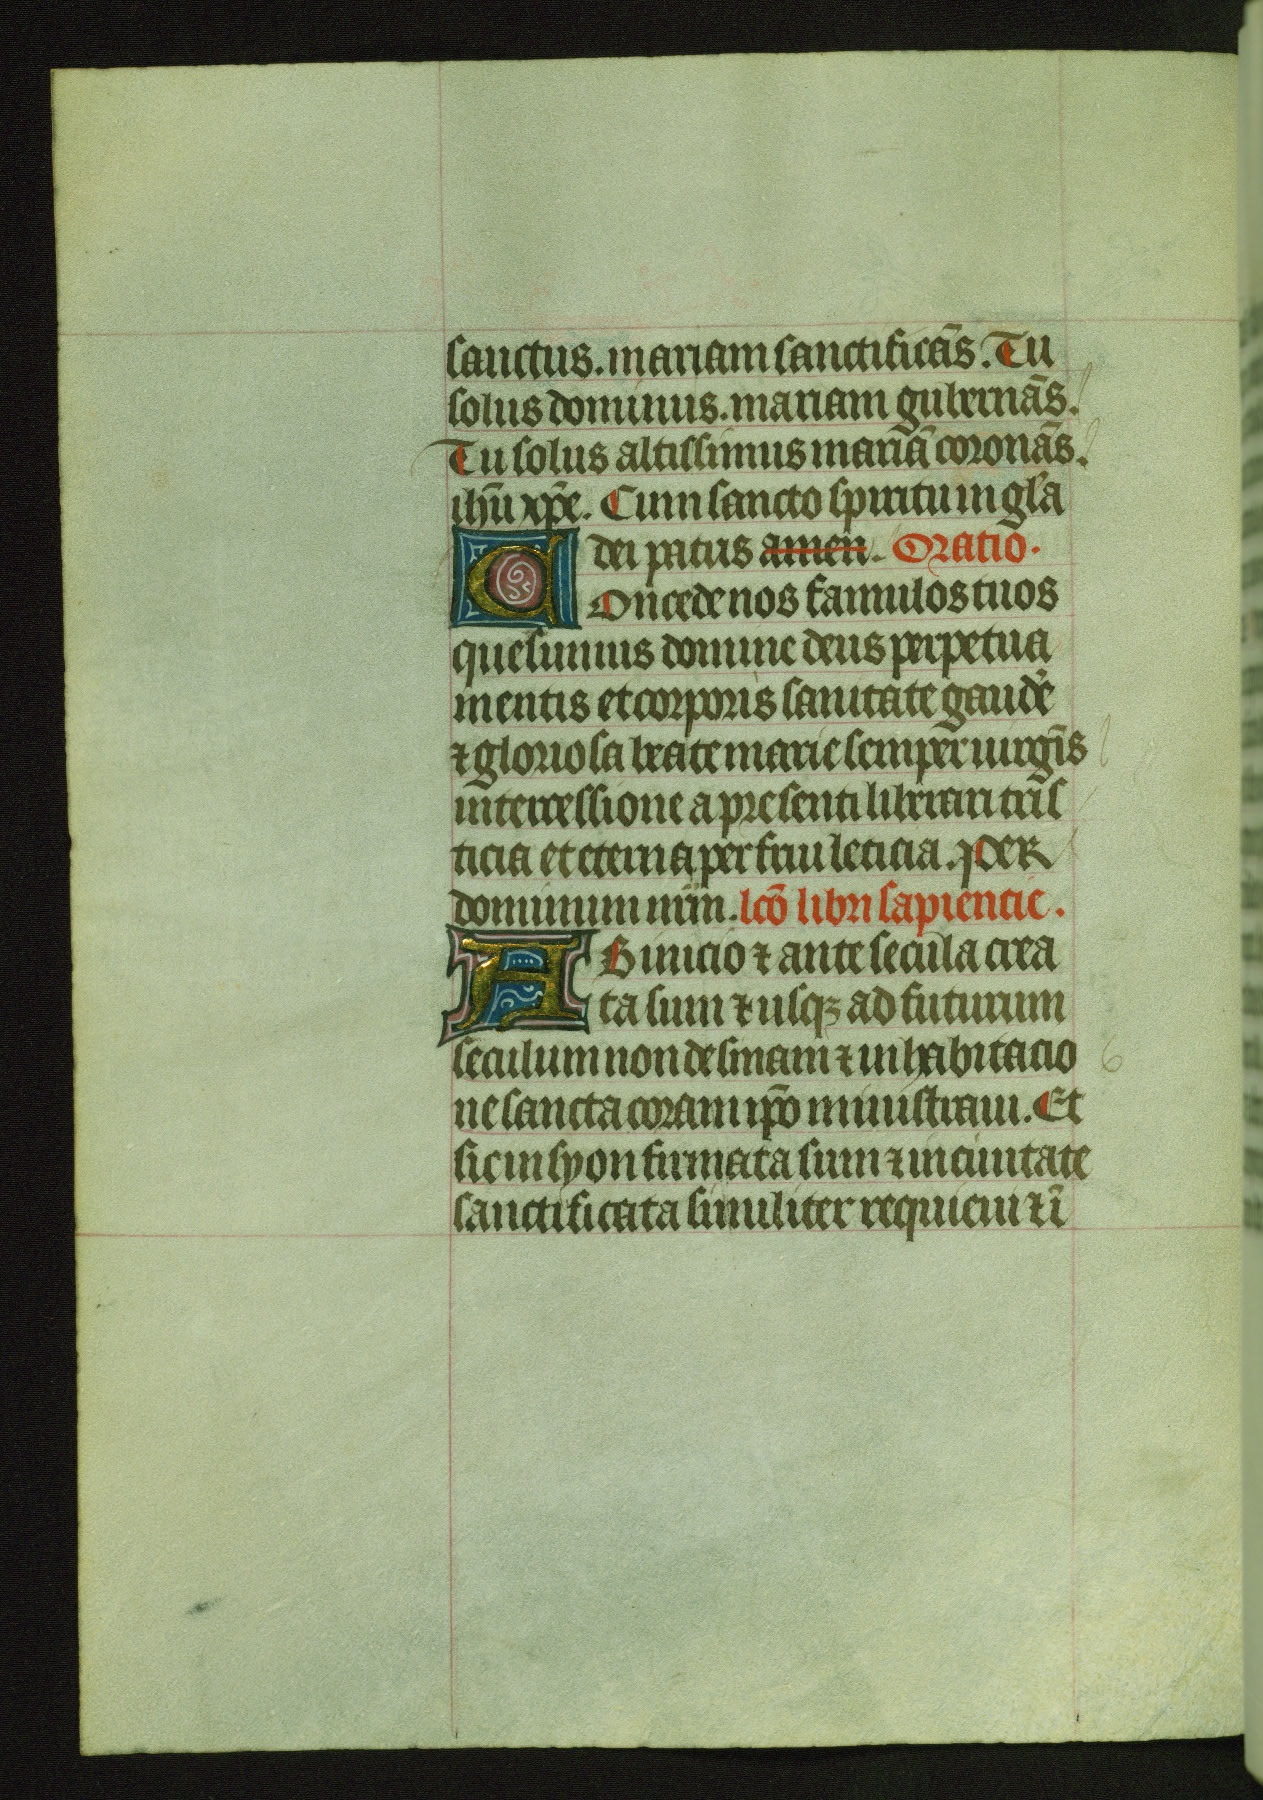 sanctus. mariam sanctificās. Tu
solus dominus. mariam gubernās.
Tu solus altissimus mariā coronās.
ihū xp̄e. Cum sancto spiritu in gl̄a
dei patris amen. Oratio.
Concede nos famulos tuos
quesumus domine deus perpetua
mentis et corporis sanitate gaudēe
⁊ gloriosa beate marie semper uirgīs
intercessione a presenti liberari tris
ticia et eterna perfrui leticia. Per
dominum nr̄m. lcō libri sapientie.
AB inicio ⁊ ante secula crea
ta sum ⁊ usqꝫ ad futurum
seculum non desinam ⁊ in habitacio
ne sancta coram ip̄o ministraui. Et
sic in syon firmata sum ⁊ in ciuitate
sanctificata similiter requieui ⁊ ī